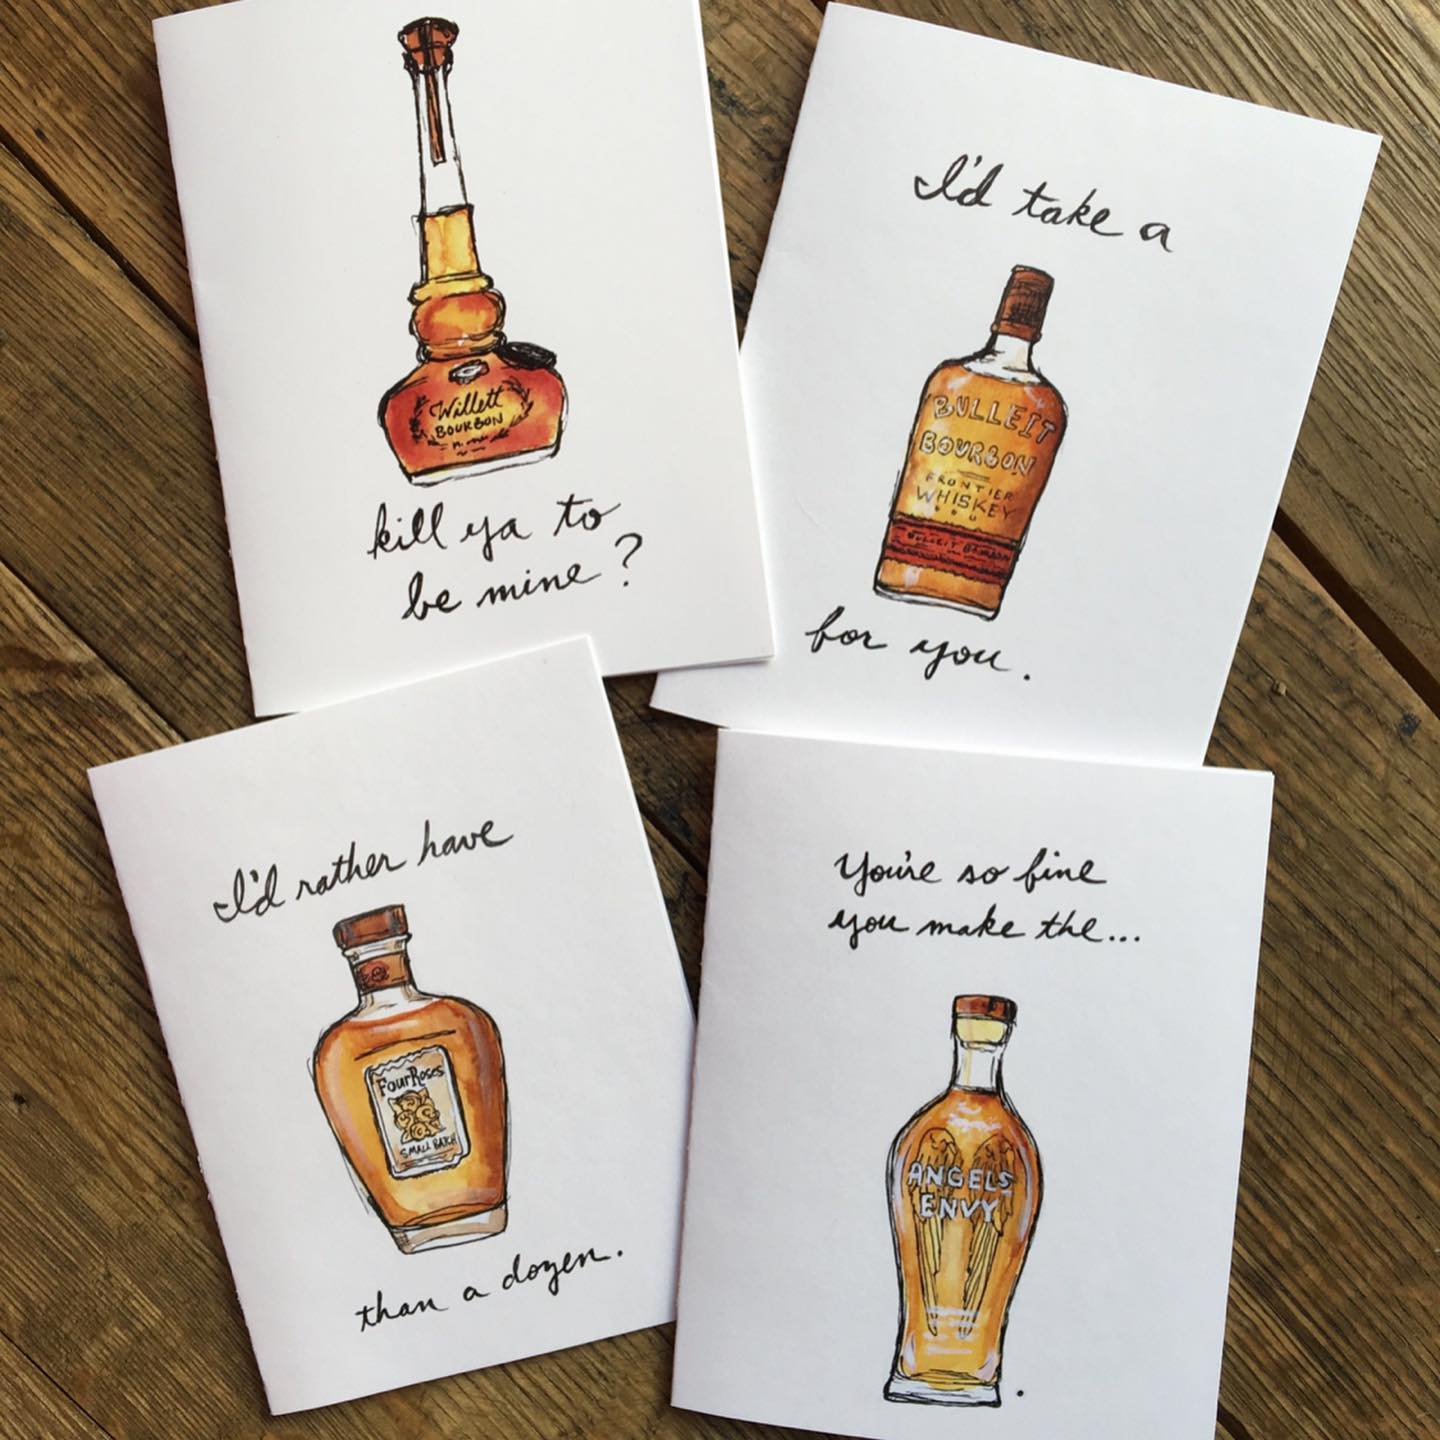 Willett
BOURBON
kill ya to
be mine?
I'd take a
BULLEIT
BOURBON
FRONTIER
WHISKEY
BULLEIT BOURBON
for you.
I'd rather have
Four Roses
SMALL BATCH
than a dozen.
You're so fine
you make the...
ANGELS
ENVY
.